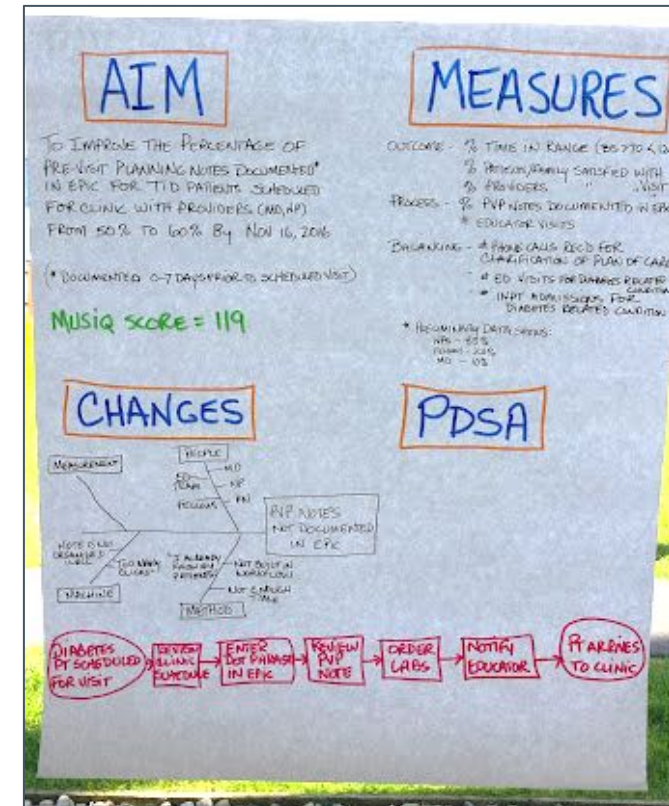 AIM
TO IMPROVE THE PERCENTAGE OF
PRE-VISIT PLANNING NOTES DOCUMENTED*
IN EPIC FOR T1D PATIENTS SCHEDULED
FOR CLINIC WITH PROVIDERS (MD, NP)
FROM 50% TO 60% BY NOV 16, 2016
(* DOCUMENTED 0-7 DAYS PRIOR TO SCHEDULED VISIT)
MUSIQ SCORE = 119
MEASURES
OUTCOME - % TIME IN RANGE
% PATIENTS/FAMILY SATISFIED WITH
% PROVIDERS " " VISIT
PROCESS - % PVP NOTES DOCUMENTED IN EPIC
* EDUCATOR VISITS
BALANCING - # PHONE CALLS REC'D FOR
CLARIFICATION OF PLAN OF CARE
# ED VISITS FOR DIABETES RELATED
CONDITION
# INPT ADMISSIONS FOR
DIABETES RELATED CONDITION
* PRELIMINARY DATA SHOWS:
CHANGES
MEASUREMENT
PEOPLE
MD
NP
RN
FELLOWS
PVP NOTES
NOT DOCUMENTED
IN EPIC
NOTE IS NOT
ORGANIZED
WELL
"TOO MANY
CLICKS"
MACHINE
"I ALREADY
KNOW MY
PATIENTS"
NOT BUILT IN
WORKFLOW
NOT ENOUGH
TIME
METHOD
PDSA
DIABETES
PT SCHEDULED
FOR VISIT
REVIEW
CLINIC
SCHEDULE
ENTER
DOT PHRASE
IN EPIC
REVIEW
PVP
NOTE
ORDER
LABS
NOTIFY
EDUCATOR
PT ARRIVES
TO CLINIC